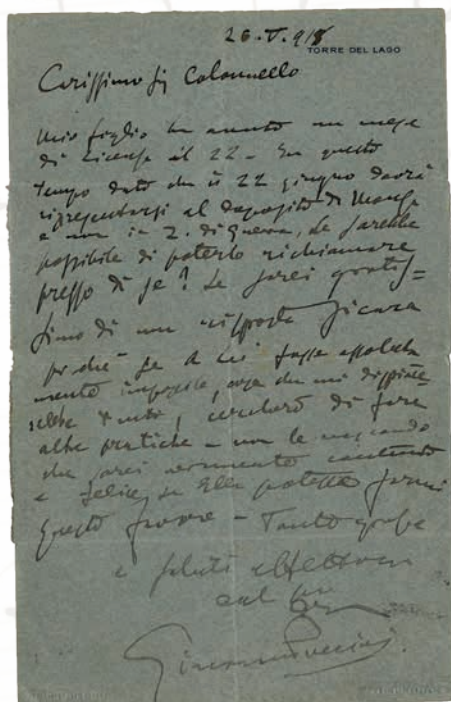 26.V.918
TORRE DEL LAGO
Carissimo Sig Colonnello
Mio figlio ha avuto un mese
di licenza il 22 - In questo
tempo dato che il 22 giugno dovrà
ripresentarsi al deposito di
e non in Z. di guerra, Le sarebbe
possibile di poterlo richiamare
presso di se? Le sarei gratis=
simo di una risposta sicura
perchè se a Lei fosse assoluta
mente impossibile, cosa che mi dispiace
rebbe tanto, cercherò di fare
altre pratiche - non le nascondo
che sarei veramente contento
e felice, se Ella potesse farmi
questo favore - Tante grazie
e saluti affettuosi
dal
Giacomo Puccini